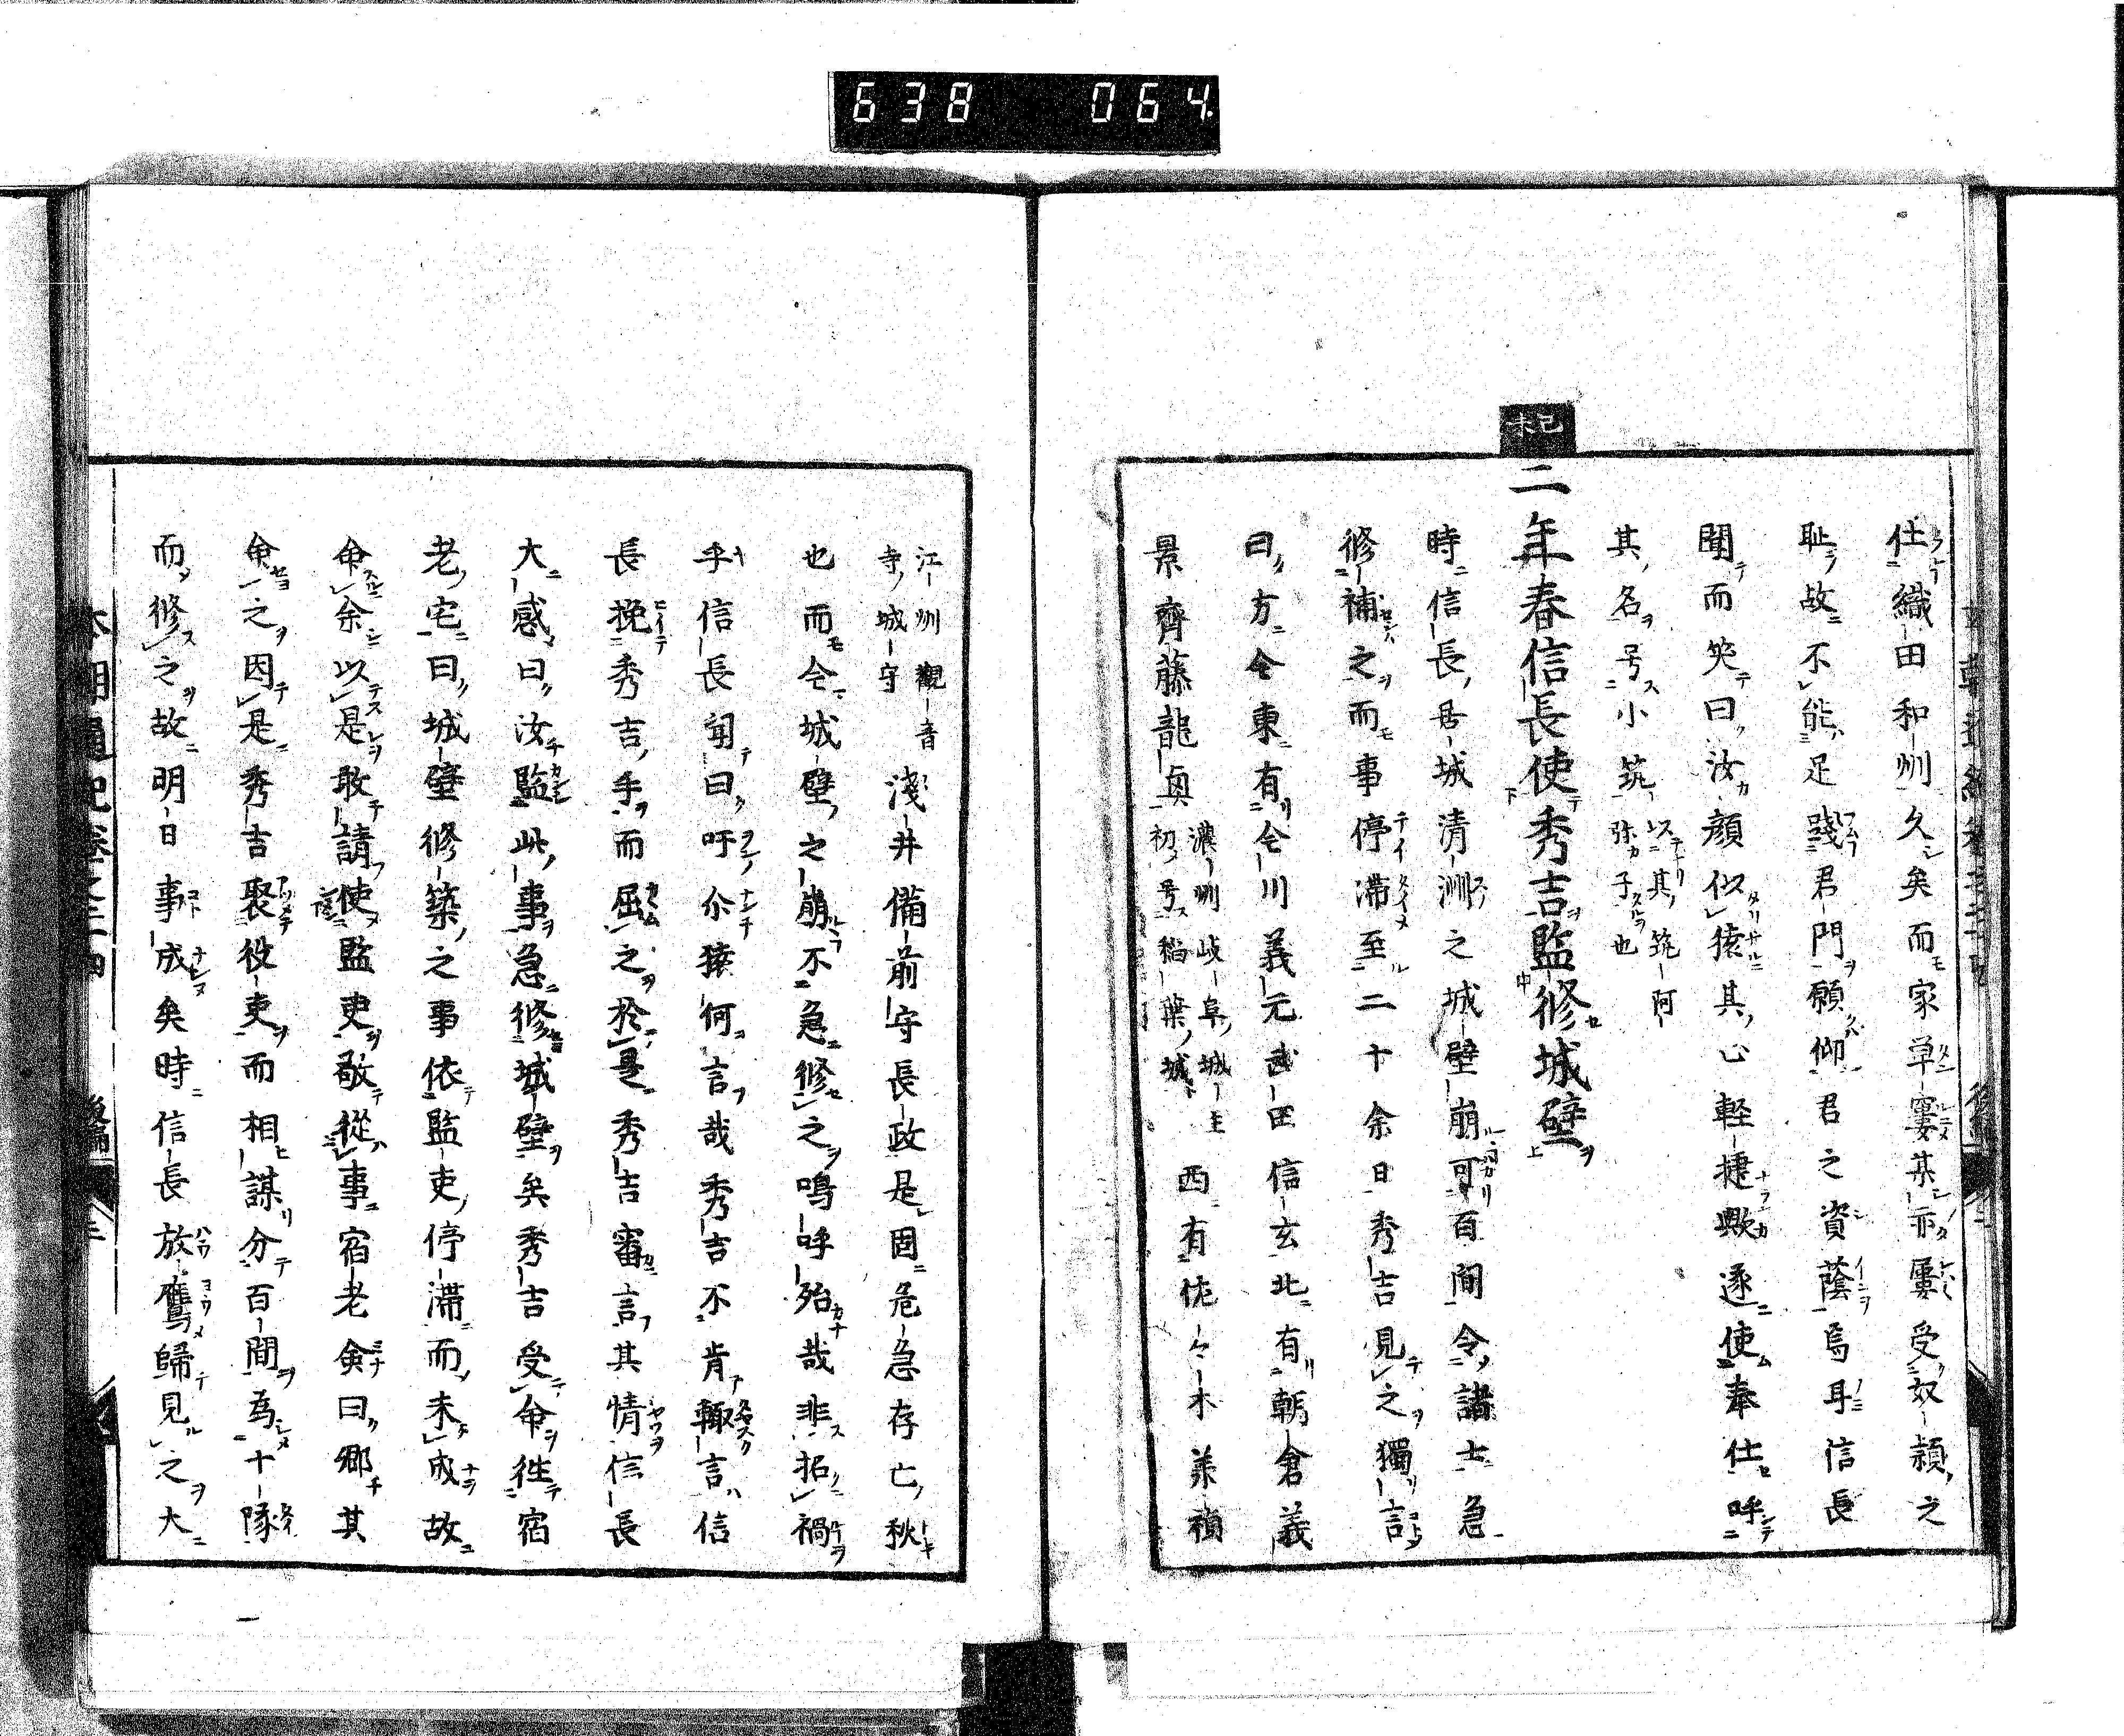 638 064
仕織田和州久矣而家単窶某亦屢受奴頴之
恥故不能足踐君門願仰君之資蔭焉耳信長
聞而笑曰汝顔似猿其心軽捷歟遂使奉仕呼
其名号小筑以其筑阿
弥子也
己未
二年春信長使秀吉監修城壁
時信長居城清洲之城壁崩可百間令諸士急
修補之而事停滞至二十余日秀吉見之獨言
曰方今東有今川義元武田信玄北有朝倉義
景齊藤龍奥濃州岐阜城主
初号稲葉城
西有佐々木義禎
江州觀音
寺城守
淺井備前守長政是固危急存亡秋
也而今城壁之崩不急修之嗚呼殆哉非招禍
乎信長聞曰吁尓猿何言哉秀吉不肯輙言信
長挽秀吉手而屈之於是秀吉審言其情信長
大感曰汝監此事急修城壁矣秀吉受命徃宿
老宅曰城壁修築之事依監吏停滞而未成故
命余以是敢請使監吏敬從事宿老僉曰郷其
命之因是秀吉聚役吏而相謀分百間為十隊
而修之故明日事成矣時信長放鷹歸見之大
本朝通紀巻之二十四 後編 三